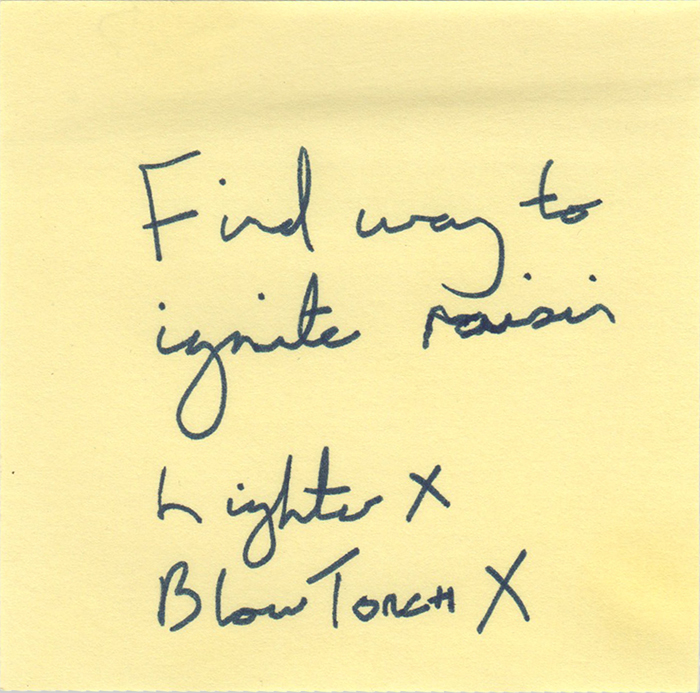 Find way to
ignite raisin
Lighter X
Blow Torch X